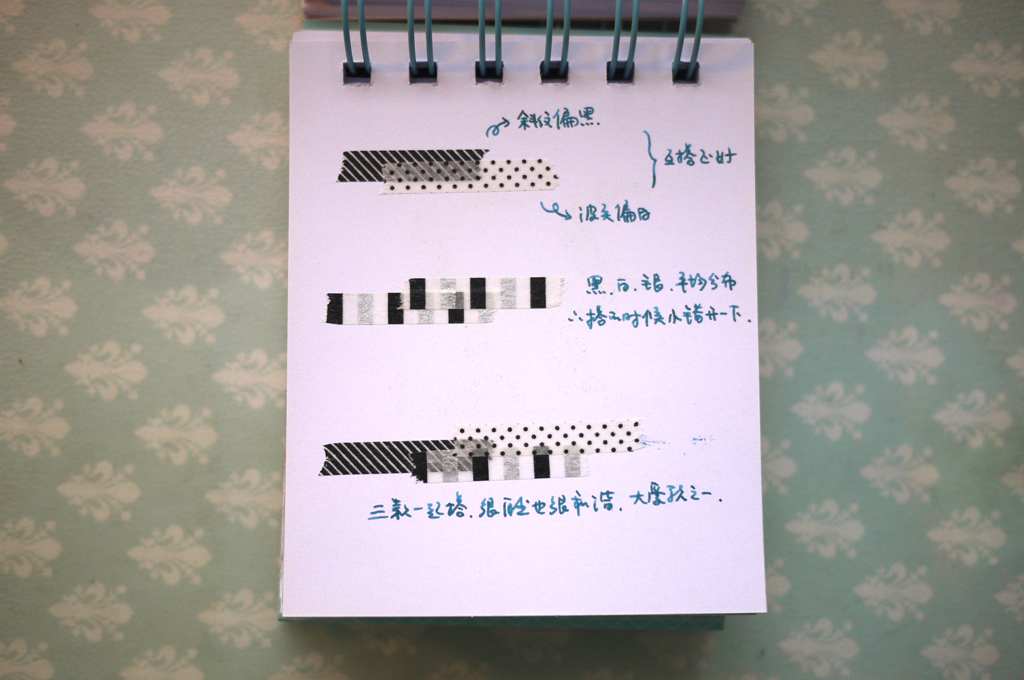 斜纹偏黑.
互搭正好
波点偏白
黑.白.银.平均分布
∴搭的时候小错开一下.
三款一起搭.很
也很和谐.大爱款之一.